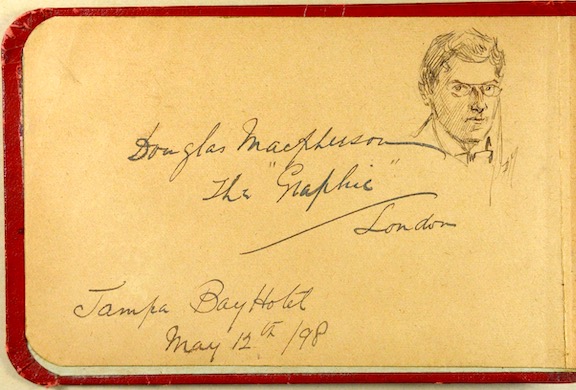 Douglas Macpherson
The "Graphic"
London
Tampa Bay Hotel
May 12th /98